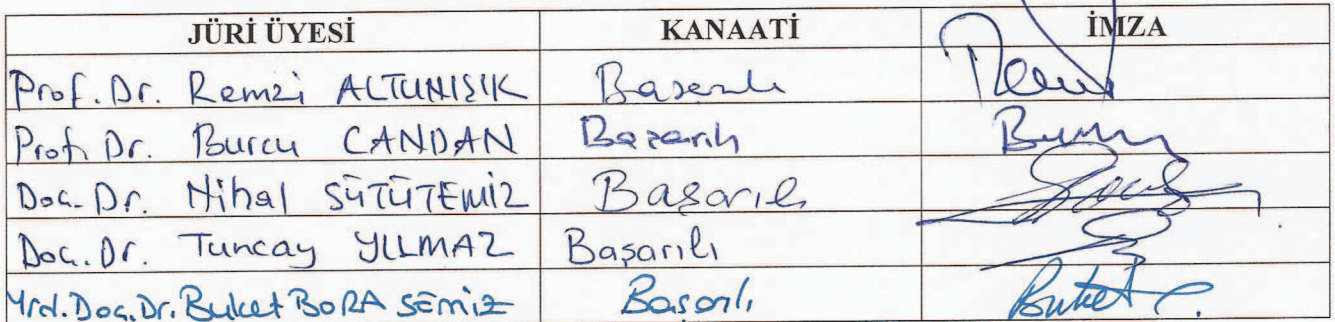 JÜRİ ÜYESİ KANAATİ İMZA
Prof. Dr. Remzi ALTUNIŞIK Başarılı
Prof. Dr. Burcu CANDAN Başarılı
Doç. Dr. Nihal SÜTÜTEMİZ Başarılı
Doç. Dr. Tuncay YILMAZ Başarılı
Yrd. Doç. Dr. Buket BORA SEMİZ Başarılı Buket